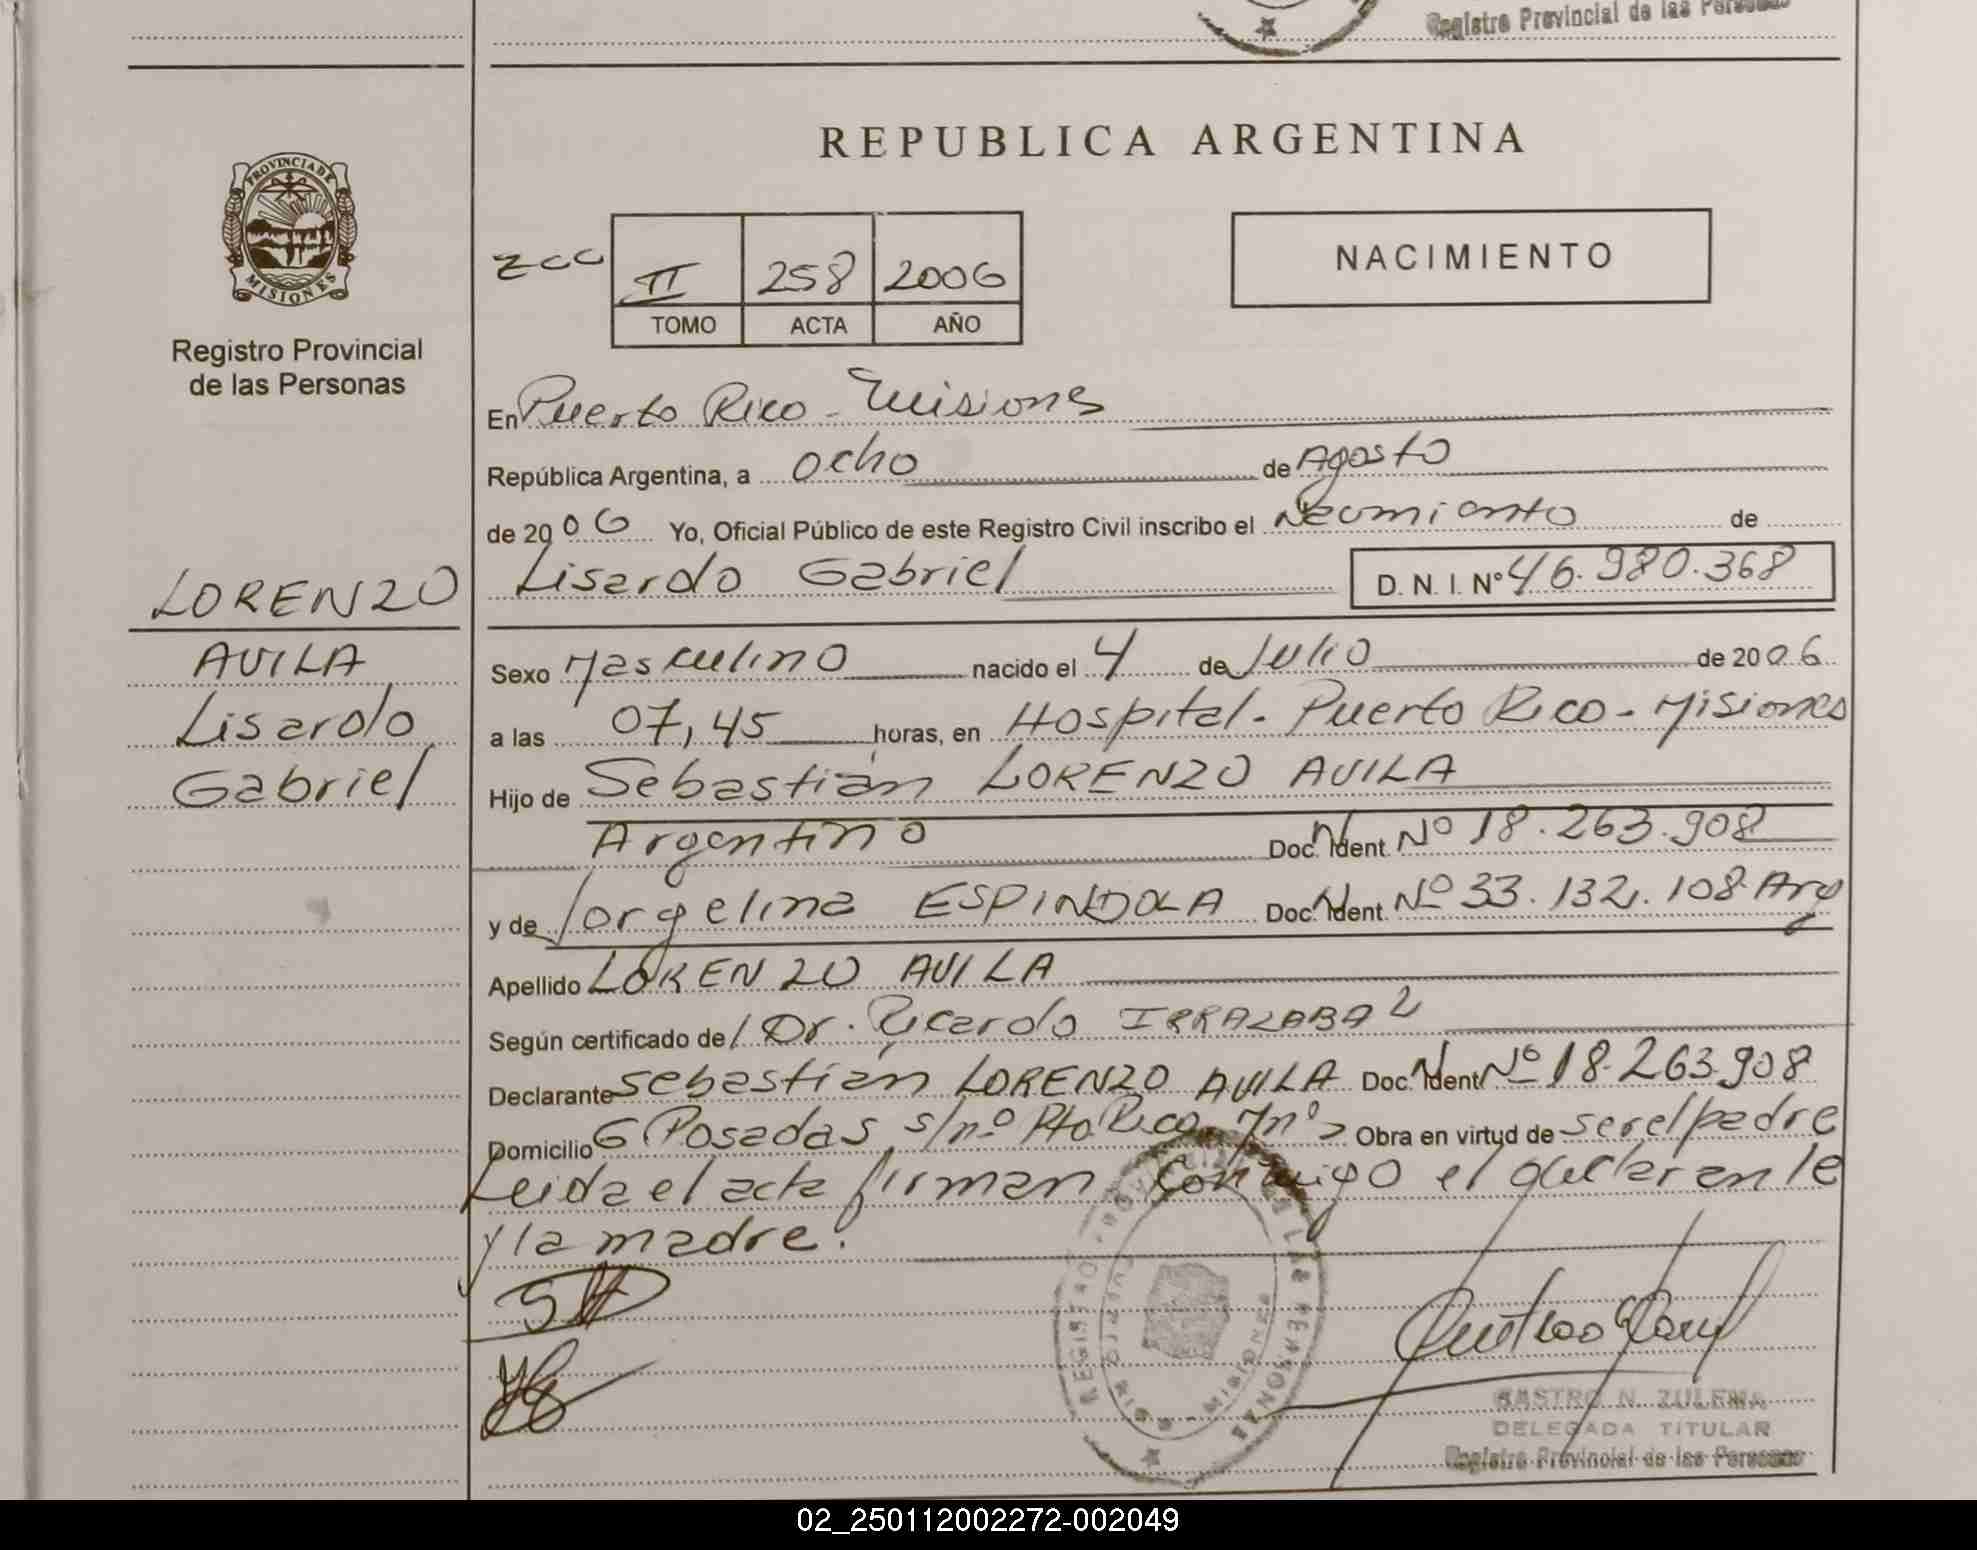 Registro Provincial de las Personas
REPUBLICA ARGENTINA
PROVINCIA DE
MISIONES
Registro Provincial
de las Personas
zcc
II 258 2006
TOMO ACTA AÑO
NACIMIENTO
En Puerto Rico - Misiones
República Argentina, a ocho de Agosto
de 2006 Yo, Oficial Público de este Registro Civil inscribo el Nacimiento de
Lisardo Gabriel D. N. I. Nº 46.980.368
LORENZO
AVILA
Lisardo
Gabriel
Sexo Masculino nacido el 4 de Julio de 2006
a las 07,45 horas, en Hospital - Puerto Rico - Misiones
Hijo de Sebastián LORENZO AVILA
Argentino Doc. Ident. Nº 18.263.908
y de Jorgelina ESPINDOLA Doc. Ident. Nº 33.132.108 Arg
Apellido LORENZO AVILA
Según certificado de Dr. Ricardo IRRAZABAL
Declarante Sebastián LORENZO AVILA Doc. Ident Nº 18.263.908
Domicilio Posadas s/nº Pto Rico Mnes Obra en virtud de ser el padre
Leida el acta firman conmigo el declarante
y la madre.
CASTRO N. ZULEMA
DELEGADA TITULAR
Registro Provincial de las Personas
02_250112002272-002049